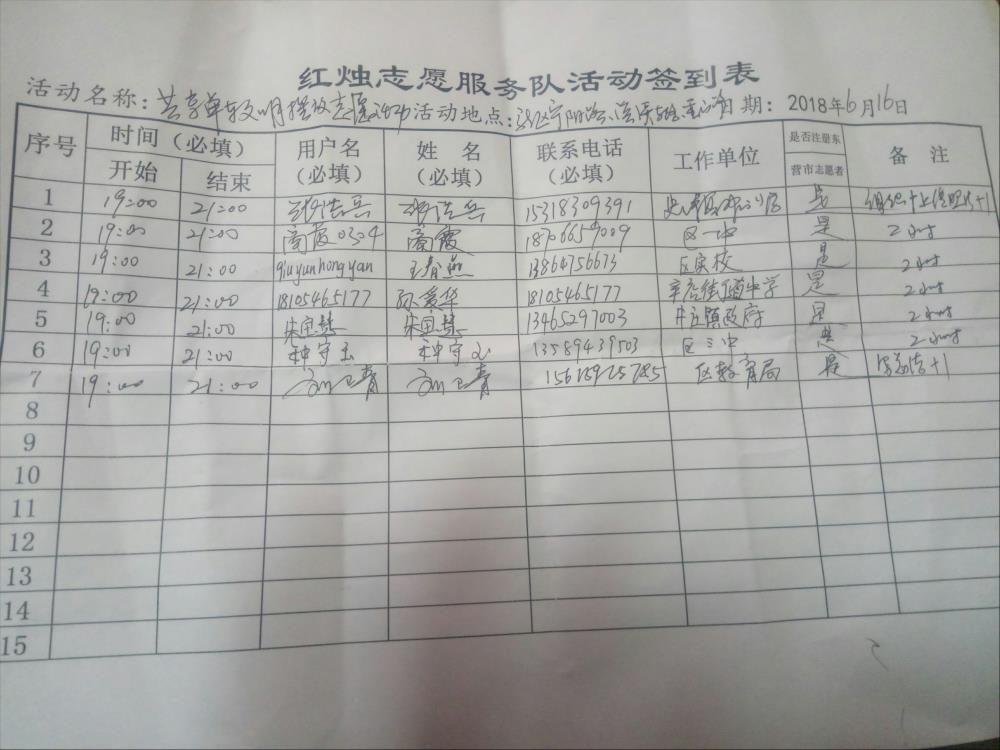 红烛志愿服务队活动签到表
活动名称：共享单车文明摆放志愿活动 活动地点： 日期：2018年6月16日
序号 时间（必填） 用户名（必填） 姓名（必填） 联系电话（必填） 工作单位 是否注册东营市志愿者 备注
开始 结束
1 19:00 21:00 15318309391 是
2 19:00 21:00 商霞0304 商霞 18706659009 区一中 是 2小时
3 19:00 21:00 qiuyunhongyan 王春燕 13864756673 区实校 是 2小时
4 19:00 21:00 18105465177 孙爱华 18105465177 辛店街道中学 是 2小时
5 19:00 21:00 13465297003 牛庄镇政府 是 2小时
6 19:00 21:00 种守玉 种守玉 13589439503 区三中 是 2小时
7 19:00 21:00 区教育局 是
8
9
10
11
12
13
14
15